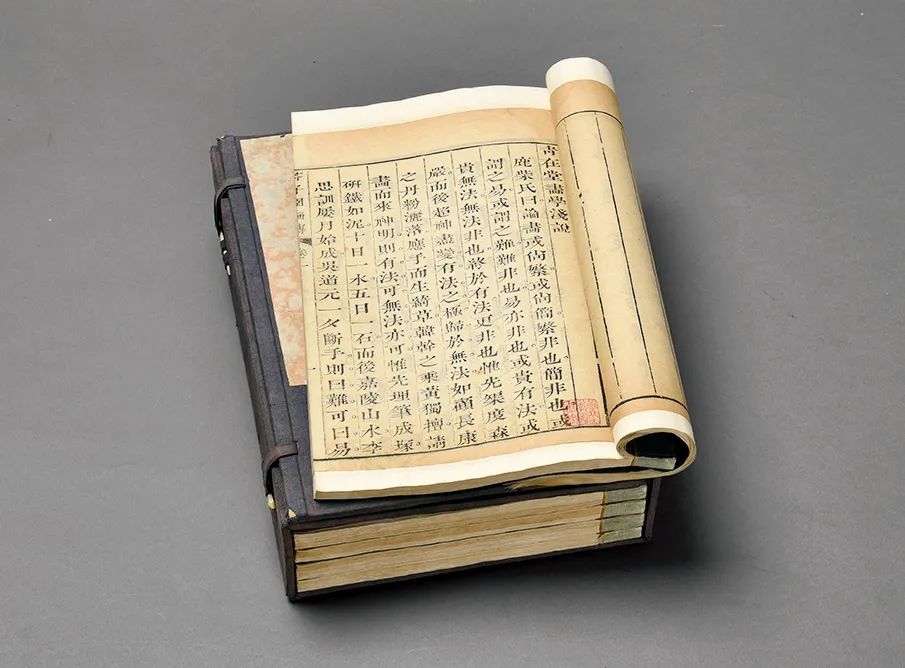 青在堂畫學淺說
鹿柴氏曰論畫或尚繁或尚簡繁非也簡非也或
謂之易或謂之難難非也易亦非也或貴有法或
貴無法無法非也終於有法更非也惟先榘度森
嚴而後超神盡變有法之極歸於無法如顧長康
之丹粉灑落應手而生綺草韓幹之乘黃獨擅請
畫而來神明則有法可無法亦可惟先埋筆成塚
硏鐵如泥十日一水五日一石而後嘉陵山水李
思訓屢月始成吳道元一夕斷手則曰難可曰易
芥子園畫傳 卷一 一